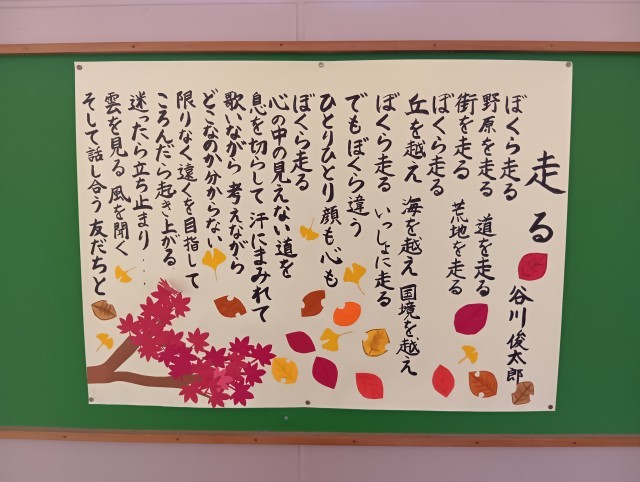 走る
谷川俊太郎
ぼくら走る
野原を走る 道を走る
街を走る 荒地を走る
ぼくら走る
丘を越え 海を越え 国境を越え
ぼくら走る いっしょに走る
でもぼくら違う
ひとりひとり顔も心も
ぼくら走る
心の中の見えない道を
息を切らして 汗にまみれて
歌いながら 考えながら
どこなのか分からない
限りなく遠くを目指して
ころんだら起き上がる
迷ったら立ち止まり...
雲を見る 風を聞く
そして話し合う 友だちと